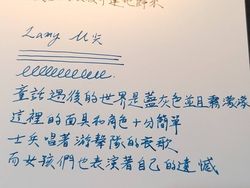 Lamy M尖
童話過後的世界是藍灰色並且霧濛濛
這裡的面具和角色十分簡單
士兵唱著游擊隊的哀歌
而女孩們也表演著自己的遺憾